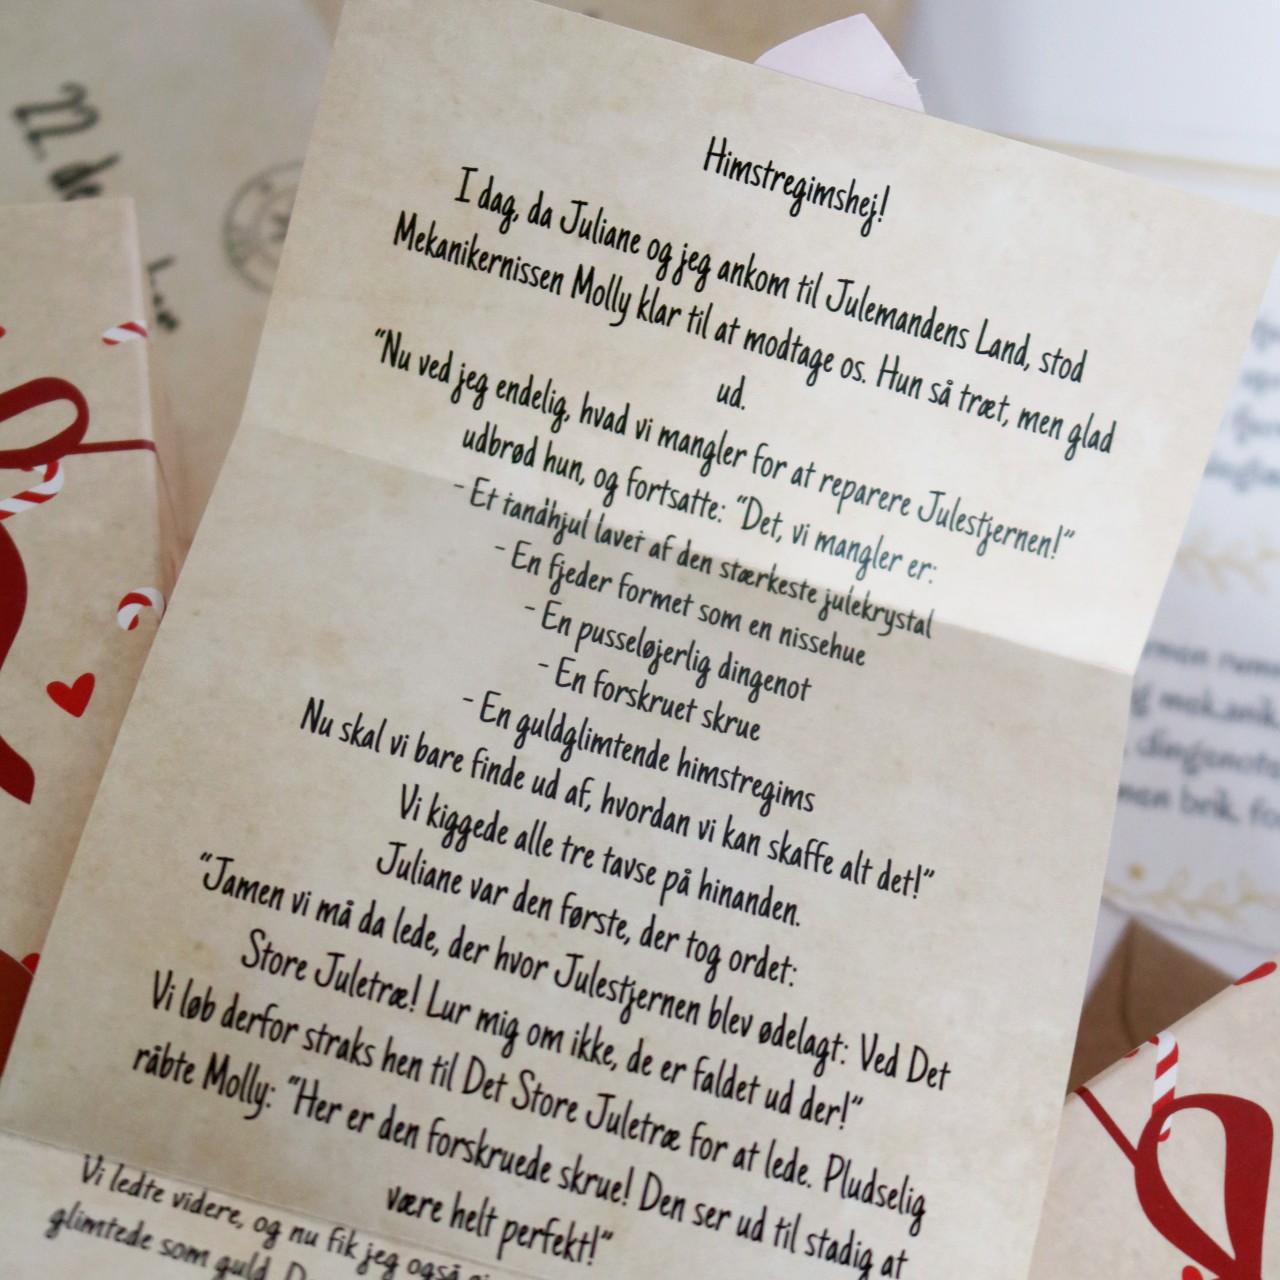 Himstregimshej!
I dag, da Juliane og jeg ankom til Julemandens Land, stod
Mekanikernissen Molly klar til at modtage os. Hun så træt, men glad
ud.
"Nu ved jeg endelig, hvad vi mangler for at reparere Julestjernen!"
udbrød hun, og fortsatte: "Det, vi mangler er:
- Et tandhjul lavet af den stærkeste julekrystal
- En fjeder formet som en nissehue
- En pusseløjerlig dingenot
- En forskruet skrue
- En guldglimtende himstregims
Nu skal vi bare finde ud af, hvordan vi kan skaffe alt det!"
Vi kiggede alle tre tavse på hinanden.
Juliane var den første, der tog ordet:
"Jamen vi må da lede, der hvor Julestjernen blev ødelagt: Ved Det
Store Juletræ! Lur mig om ikke, de er faldet ud der!"
Vi løb derfor straks hen til Det Store Juletræ for at lede. Pludselig
råbte Molly: "Her er den forskruede skrue! Den ser ud til stadig at
være helt perfekt!"
Vi ledte videre, og nu fik jeg også
glimtede som guld.
22. de